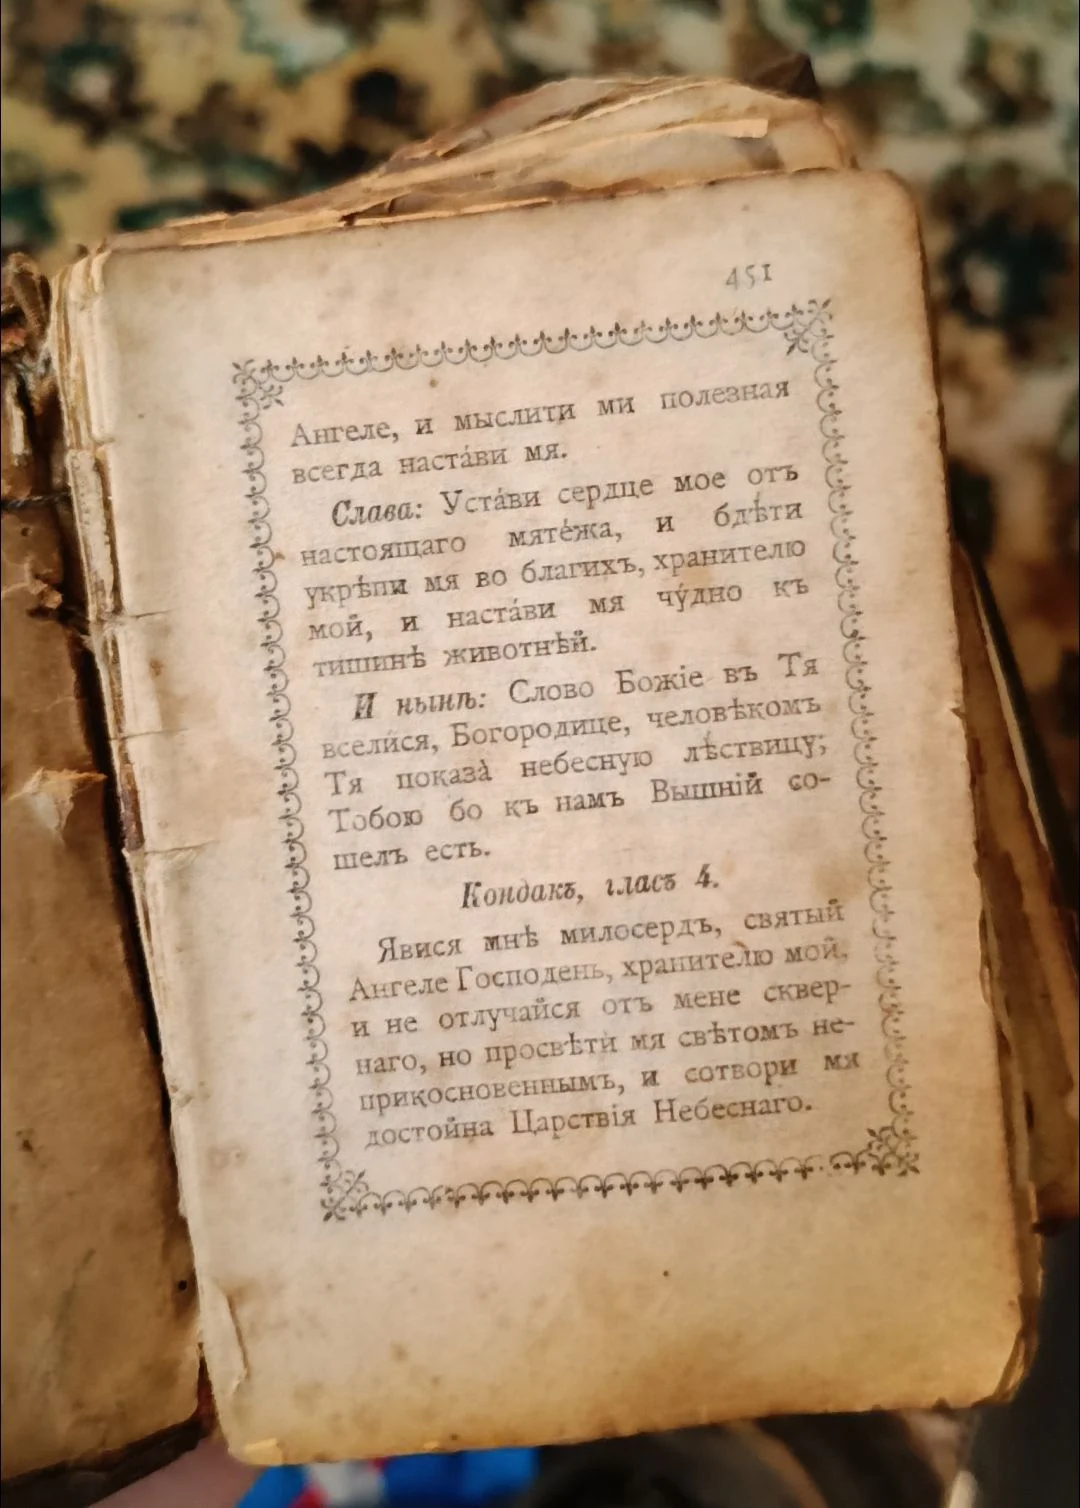 451
Ангеле, и мыслити ми полезная
всегда настáви мя.
Слава: Устáви сердце мое отъ
настоящаго мятéжа, и бдѣ́ти
укрѣпи мя во благихъ, хранителю
мой, и настáви мя чýдно къ
тишинѣ животнѣй.
И нынѣ: Слово Божіе въ Тя
вселися, Богородице, человѣкомъ
Тя показà небесную лѣ́ствицу;
Тобою бо къ намъ Вышній со-
шелъ есть.
Кондакъ, гласъ 4.
Явися мнѣ милосердъ, святый
Ангеле Господень, хранителю мой,
и не отлучайся отъ мене сквер-
наго, но просвѣти мя свѣтомъ не-
прикосновеннымъ, и сотвори мя
достойна Царствія Небеснаго.